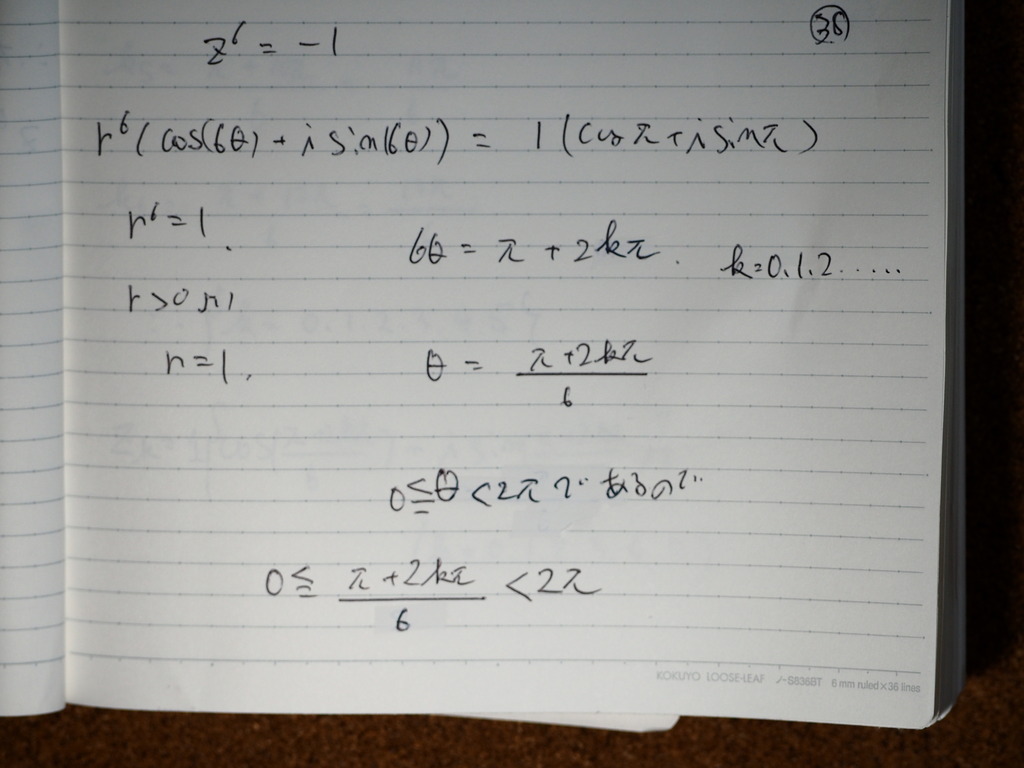 ㊱
z⁶ = -1
r⁶(cos(6θ) + i sin(6θ)) = 1(cos π + i sin π)
r⁶ = 1.
6θ = π + 2kπ. k=0.1.2.....
r > 0 より
r = 1.
θ = (π + 2kπ)/6
0 ≦ θ < 2π で あるので
0 ≦ (π + 2kπ)/6 < 2π
KOKUYO LOOSE-LEAF ノ-S836BT 6 mm ruled×36 lines